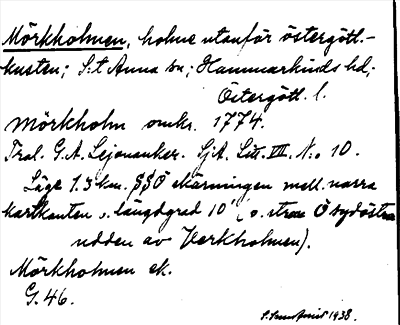 Mörkholmen, holme utanför östergötl.-
kusten; S:t Anna sn; Hammarkinds hd;
Östergötl. l.
Mörkholm omkr. 1774.
Trol. G. A. Lejonanker. SjA. Litt. VII. N:o 10.
Läge 1.3 km. SSÖ skärningen mell. norra
kartkanten o. längdgrad 10' (o. strax Ö sydöstra
udden av Verkholmen).
Mörkholmen ek.
G. 46.
1938.